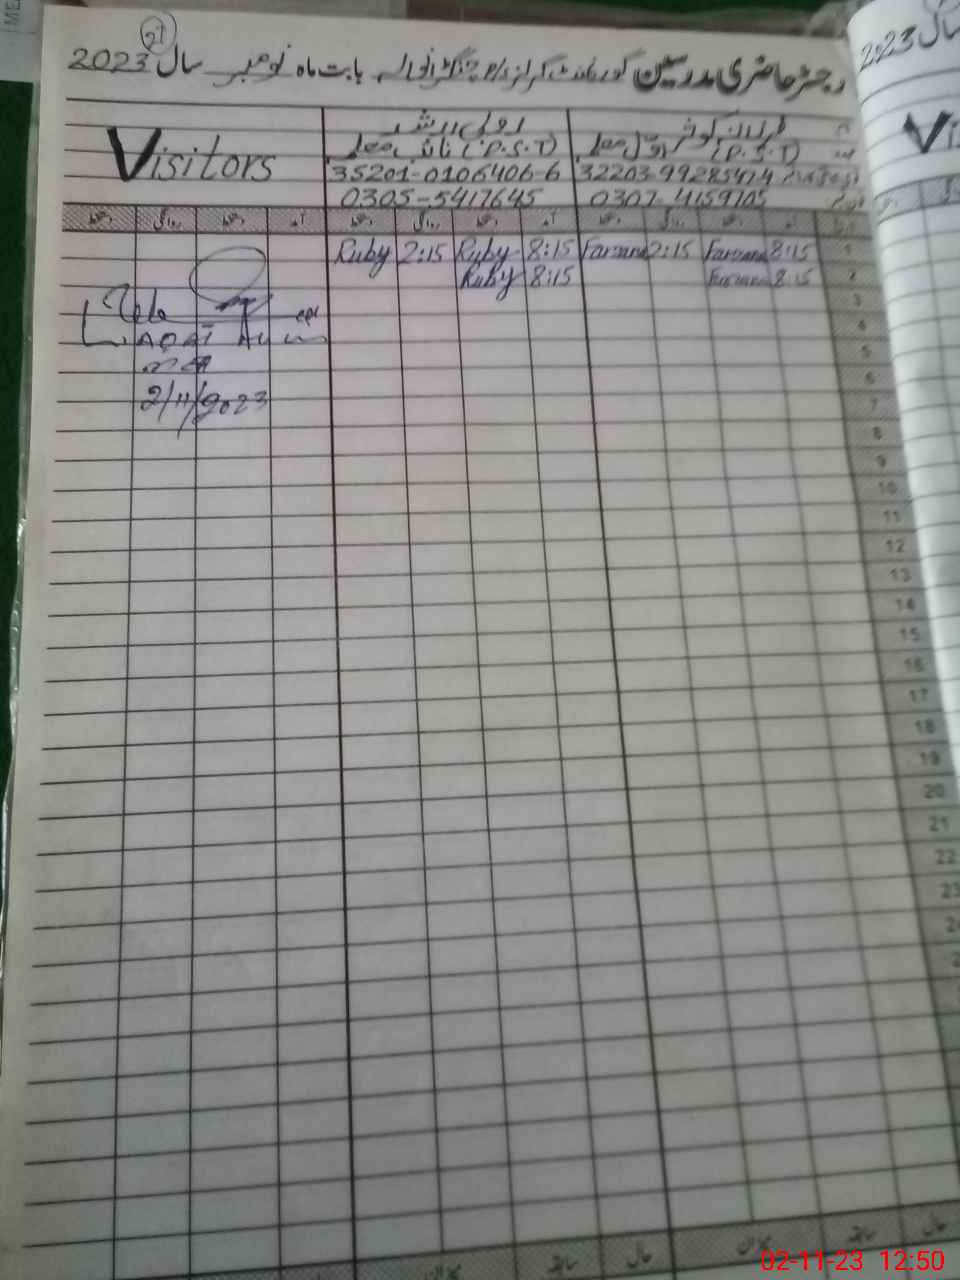 رجسٹر حاضری مدرسین گورنمنٹ گرلز بابت ماہ نومبر سال 2023
21
سال 2023
فرزانہ کوثر
روبی ارشد
Visitors
Vis
اول معلمہ (P.S.T)
نائب معلمہ (P.S.T)
32203-9928547-4
35201-0106406-6
0307-4159705
0305-5417645
آمد دستخط روانگی دستخط آمد دستخط روانگی دستخط آمد دستخط روانگی دستخط
1 8:15 Farzana 2:15 Farzana 8:15 Ruby 2:15 Ruby
2 8:15 Farzana 8:15 Ruby
3
4
5
6
7
2/11/2023
8
9
10
11
12
13
14
15
16
17
18
19
20
21
22
23
حال سابقہ میزان حال سابقہ میزان
02-11-23 12:50